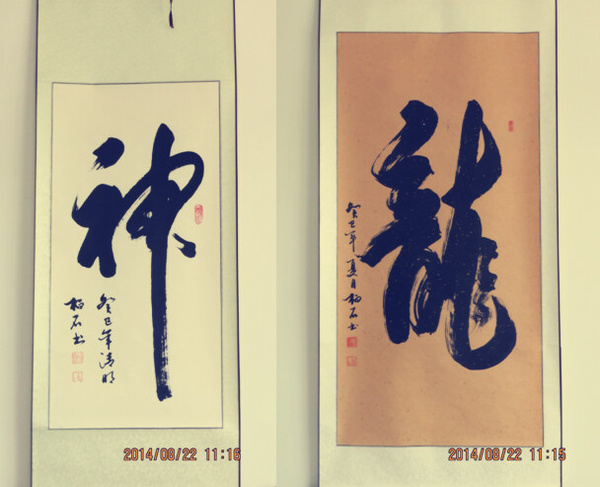 神
癸巳年清明
柏石书
2014/08/22 11:16
龍
癸巳年夏月柏石书
2014/08/22 11:15